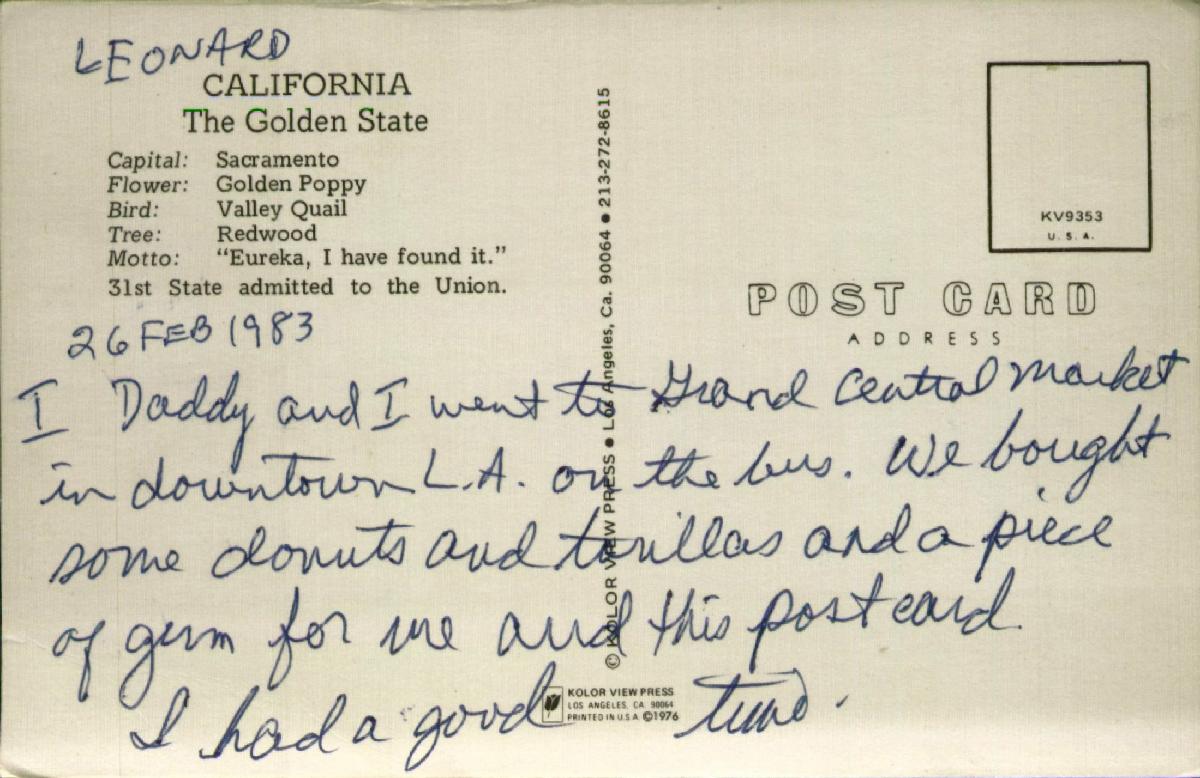 LEONARD
CALIFORNIA
The Golden State
Capital: Sacramento
Flower: Golden Poppy
Bird: Valley Quail
Tree: Redwood
Motto: "Eureka, I have found it."
31st State admitted to the Union.
26 FEB 1983
I Daddy and I went to Grand Central Market
in downtown L.A. on the bus. We bought
some donuts and torillas and a piece
of gum for me and this postcard.
I had a good time.
© KOLOR VIEW PRESS • Los Angeles, Ca. 90064 • 213-272-8615
KOLOR VIEW PRESS
LOS ANGELES, CA. 90064
PRINTED IN U.S.A. ©1976
KV9353
U. S. A.
POST CARD
ADDRESS